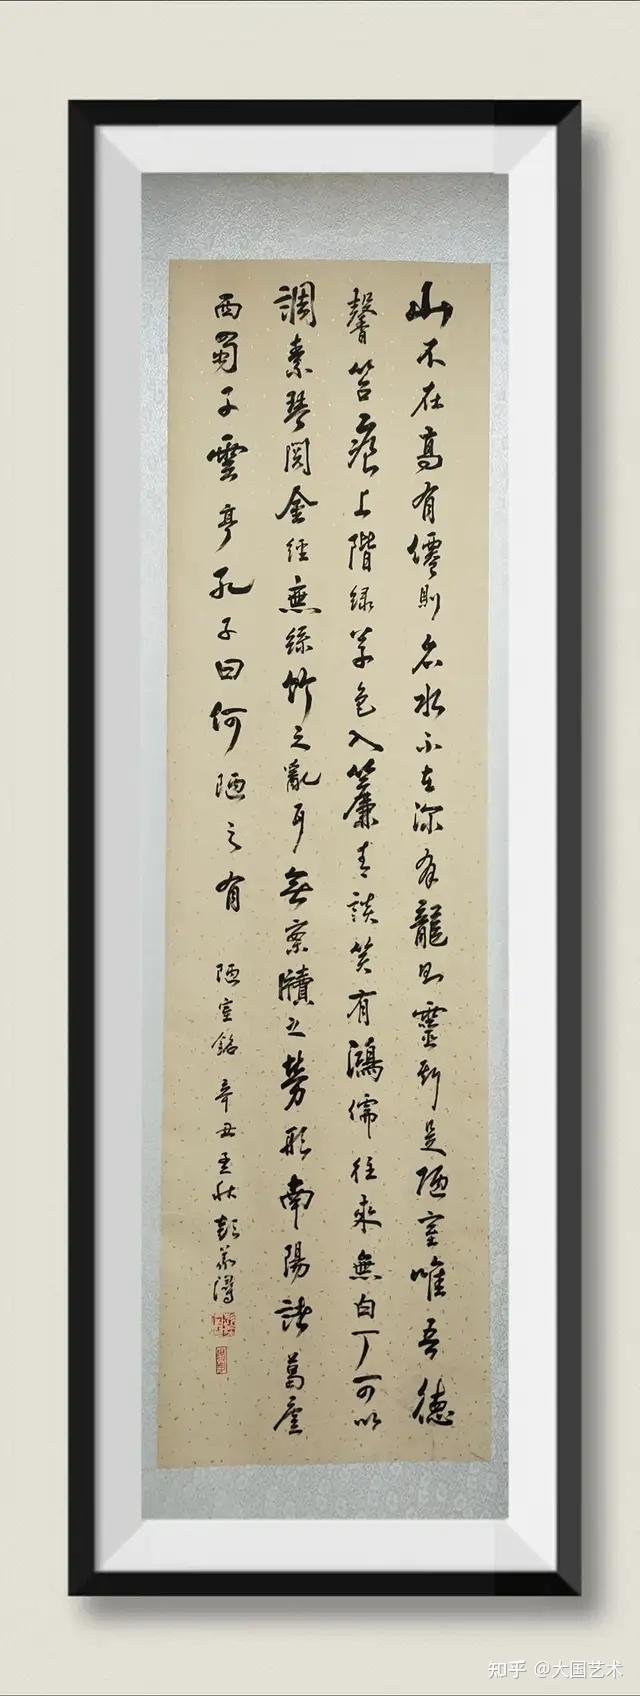 山不在高有僊則名水不在深有龍則靈斯是陋室唯吾德
馨苔痕上階緑草色入簾青談笑有鴻儒往來無白丁可以
調素琴閱金經無絲竹之亂耳無案牘之勞形南陽諸葛廬
西蜀子雲亭孔子曰何陋之有 陋室銘 辛丑孟秋彭
知乎 @大国艺术